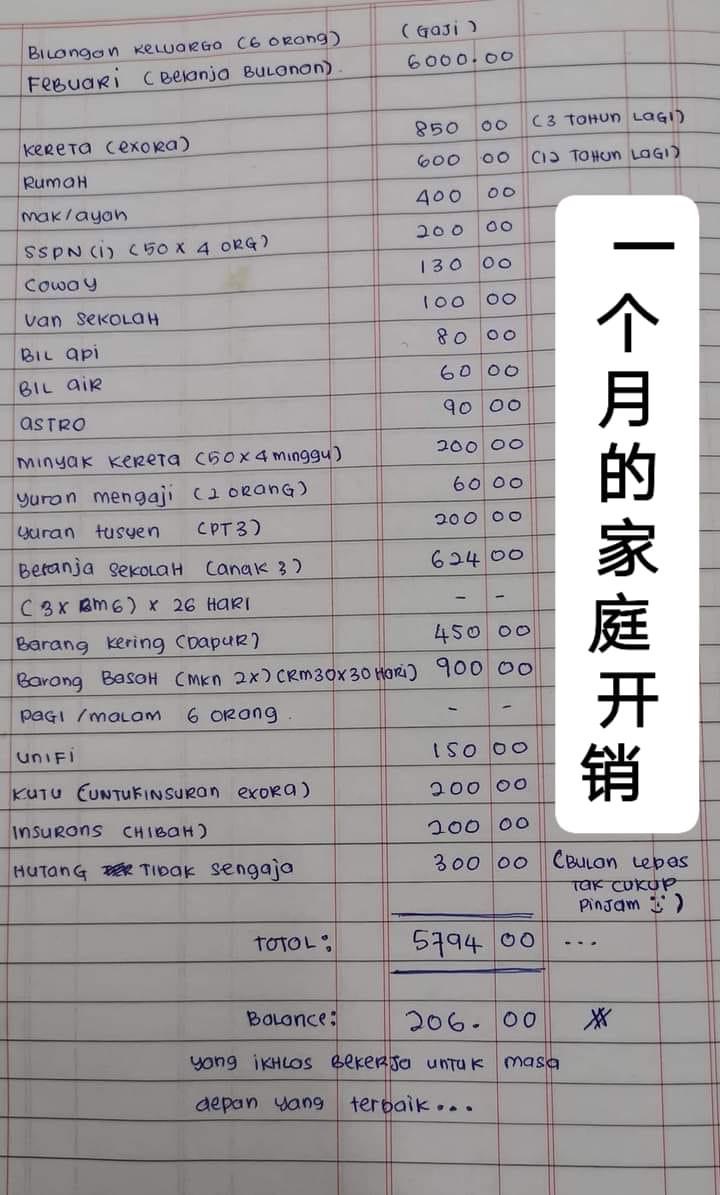 Bilangan Keluarga (6 orang) (Gaji)
Febuari (Belanja Bulanan). 6000.00
Kereta (exora) 850 00 (3 Tahun Lagi)
Rumah 600 00 (12 Tahun Lagi)
mak/ayah 400 00
SSPN (i) (50 x 4 ORG) 200 00
Coway 130 00
Van Sekolah 100 00
Bil api 80 00
Bil air 60 00
ASTRO 90 00
Minyak Kereta (50x4 minggu) 200 00
Yuran mengaji (2 orang) 60 00
Yuran tusyen (PT3) 200 00
Belanja Sekolah (anak 3) 624 00
(3 x RM6) x 26 Hari - -
Barang Kering (Dapur) 450 00
Barang Basah (mkn 2x) (RM30x30 Hari) 900 00
Pagi /malam 6 orang. - -
Unifi 150 00
Kutu (untuk insuran exora) 200 00
Insurans (Hibah) 200 00
Hutang Tidak sengaja 300 00 (Bulan lepas
tak cukup
pinjam )
TOTOL: 5794 00 ...
Balance: 206. 00
yang ikhlas bekerja untuk masa
depan yang terbaik...
一个月的家庭开销